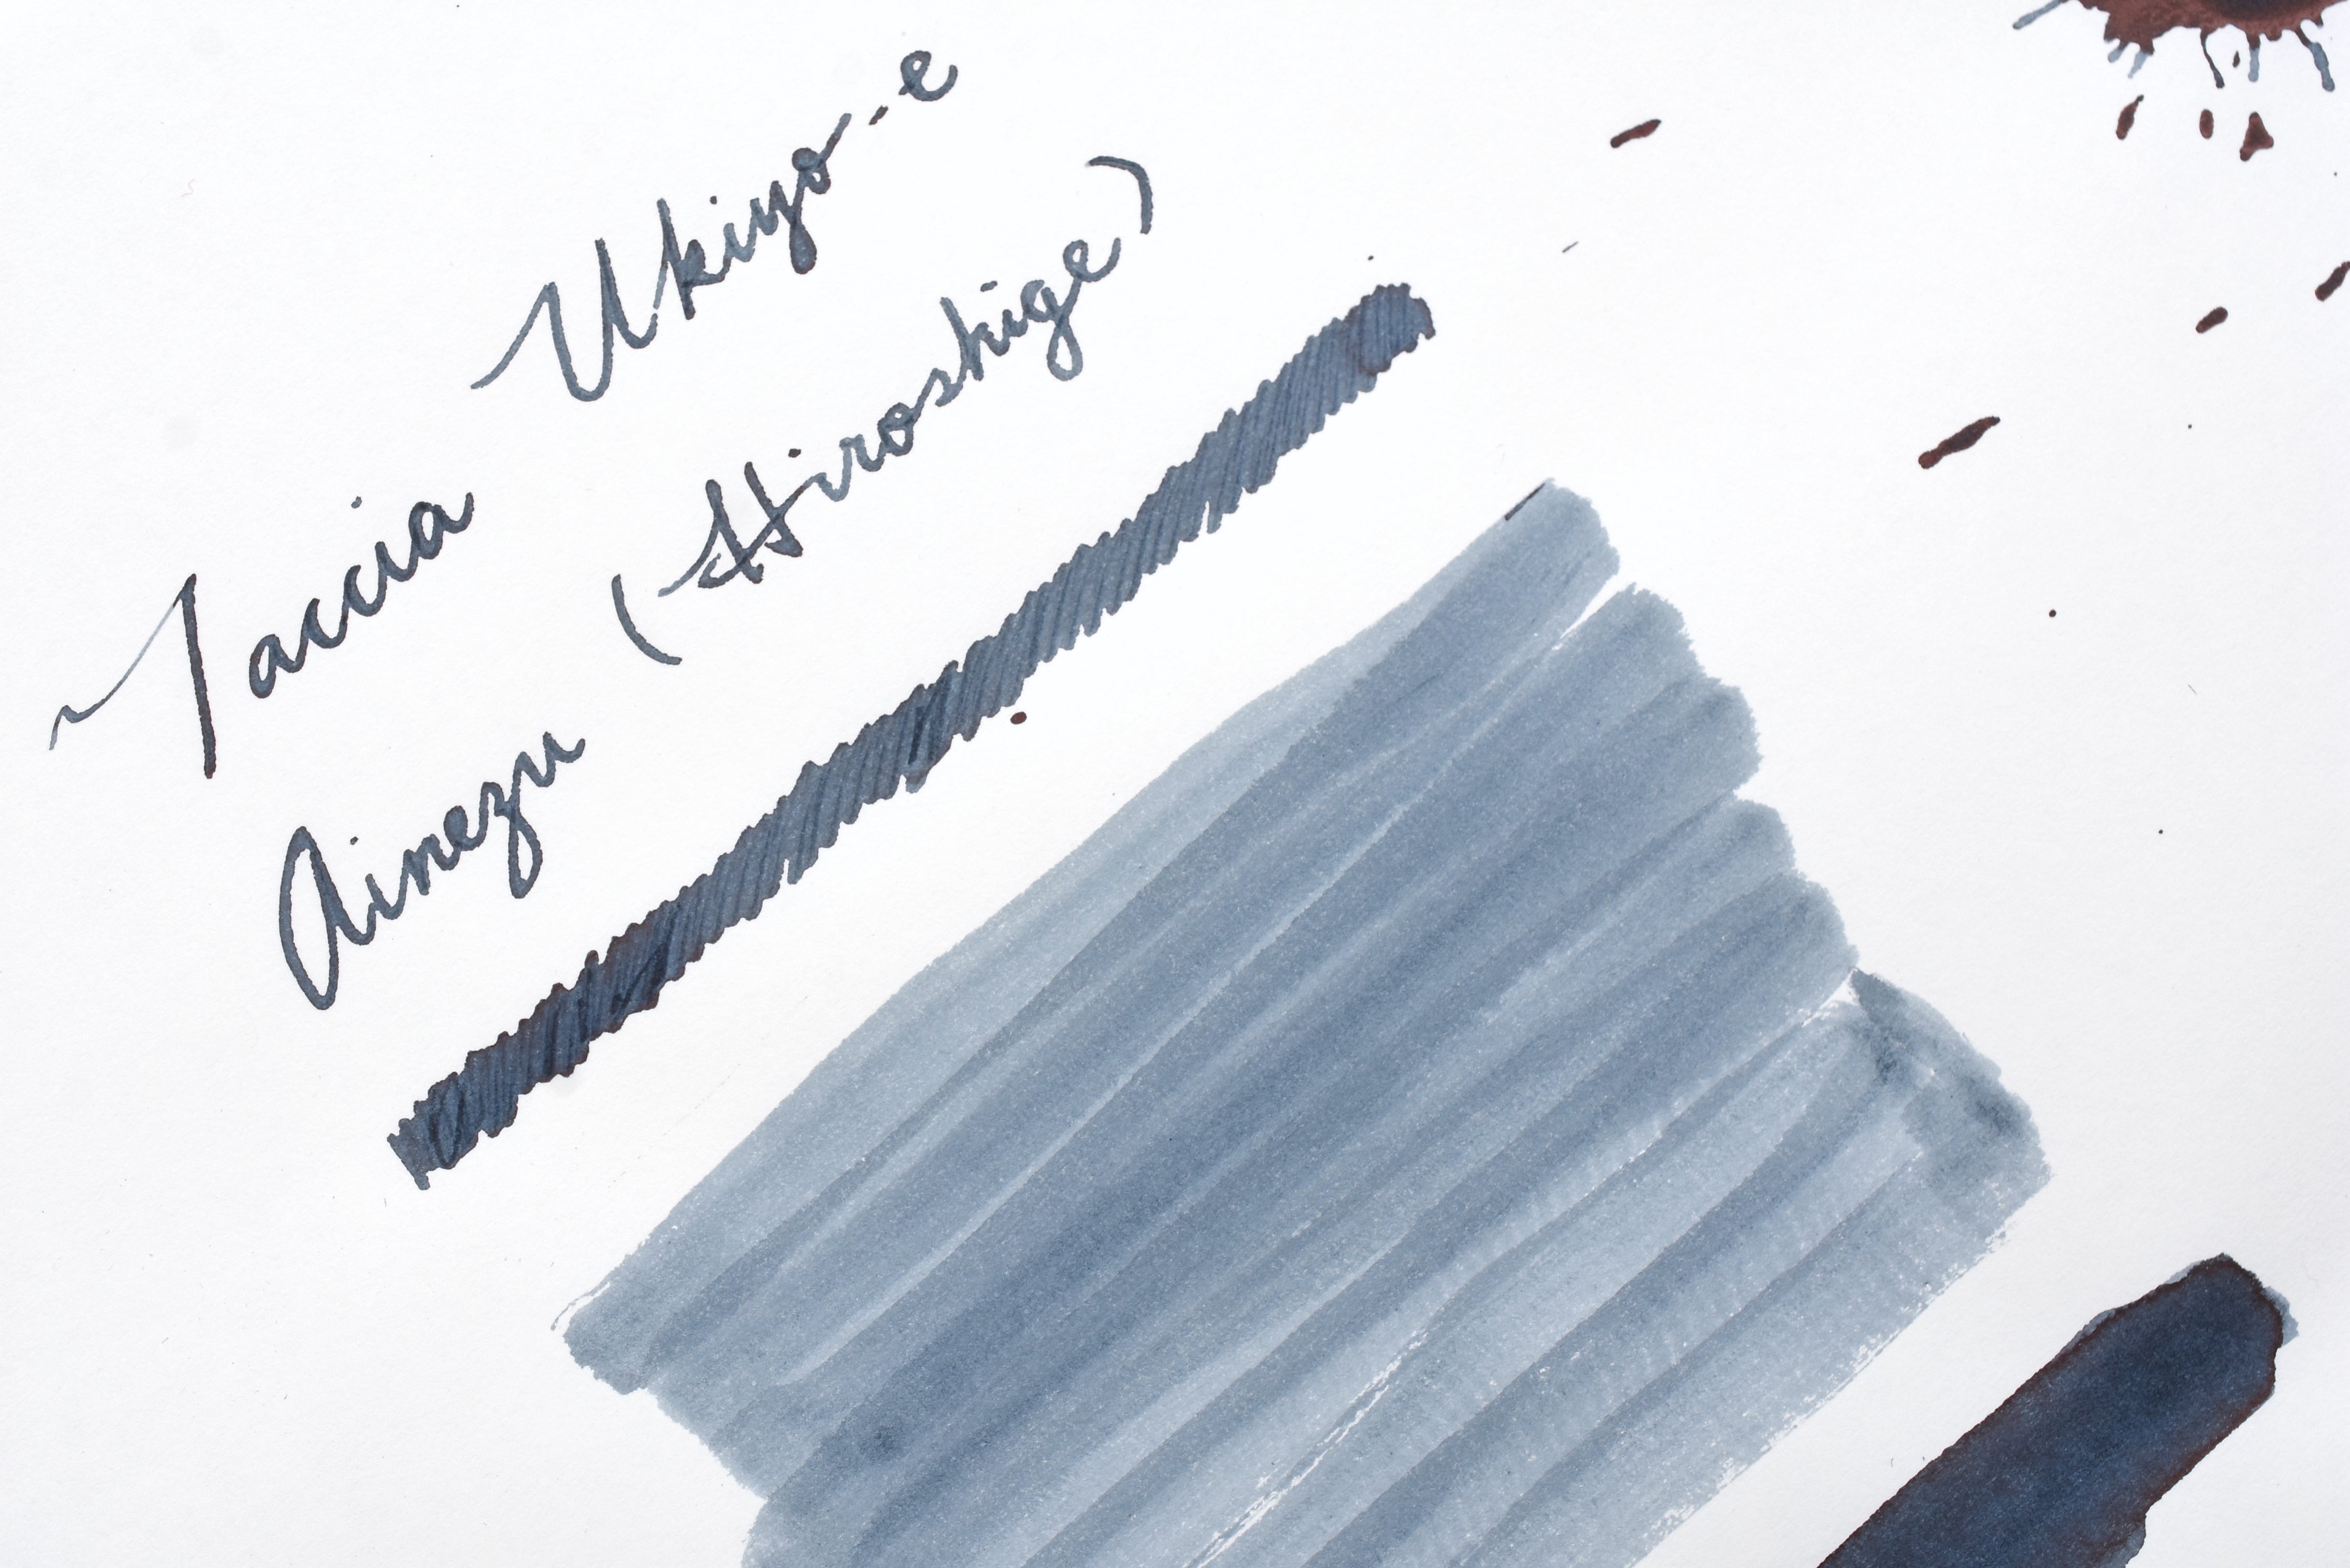 Taccia Ukiyo-e
Ainezu (Hiroshige)